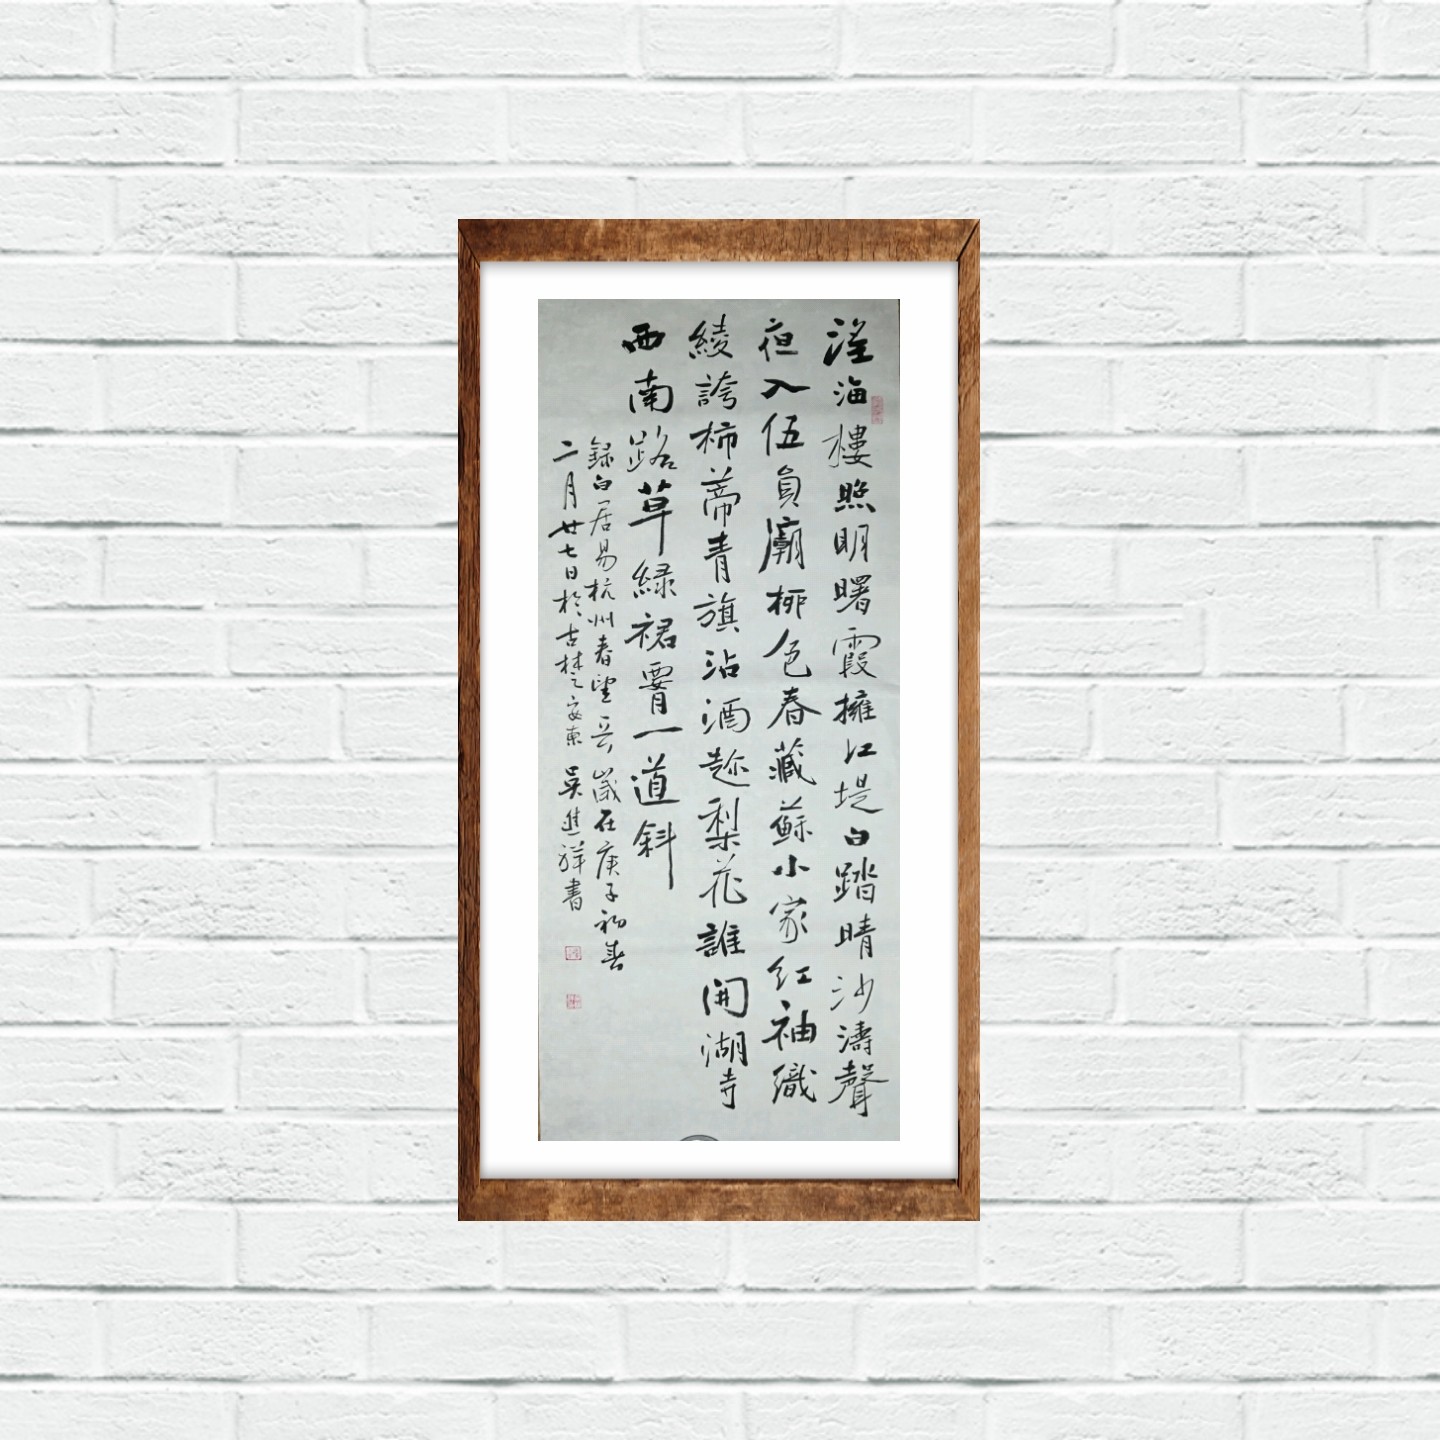 望海樓照明曙霞擁江堤白踏晴沙濤聲
夜入伍員廟桺色春藏蘇小家紅袖織
綾誇柿蒂青旗沽酒趂梨花誰開湖寺
西南路草緑裙腰一道斜
録白居易杭州春望 歲在庚子初春
二月廿七日於古林之東 吳進祥書